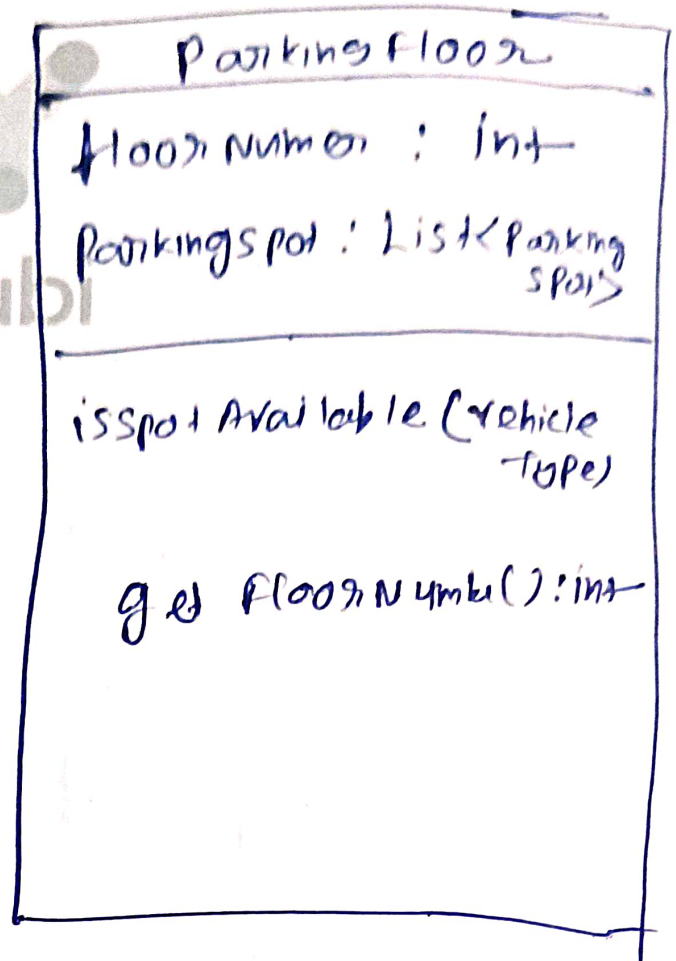 Parking Floor
floor Numer : int
Parkingspot : List<Parking
spot>
isspot Available (vehicle
Type)
get FloorNumbe() : int